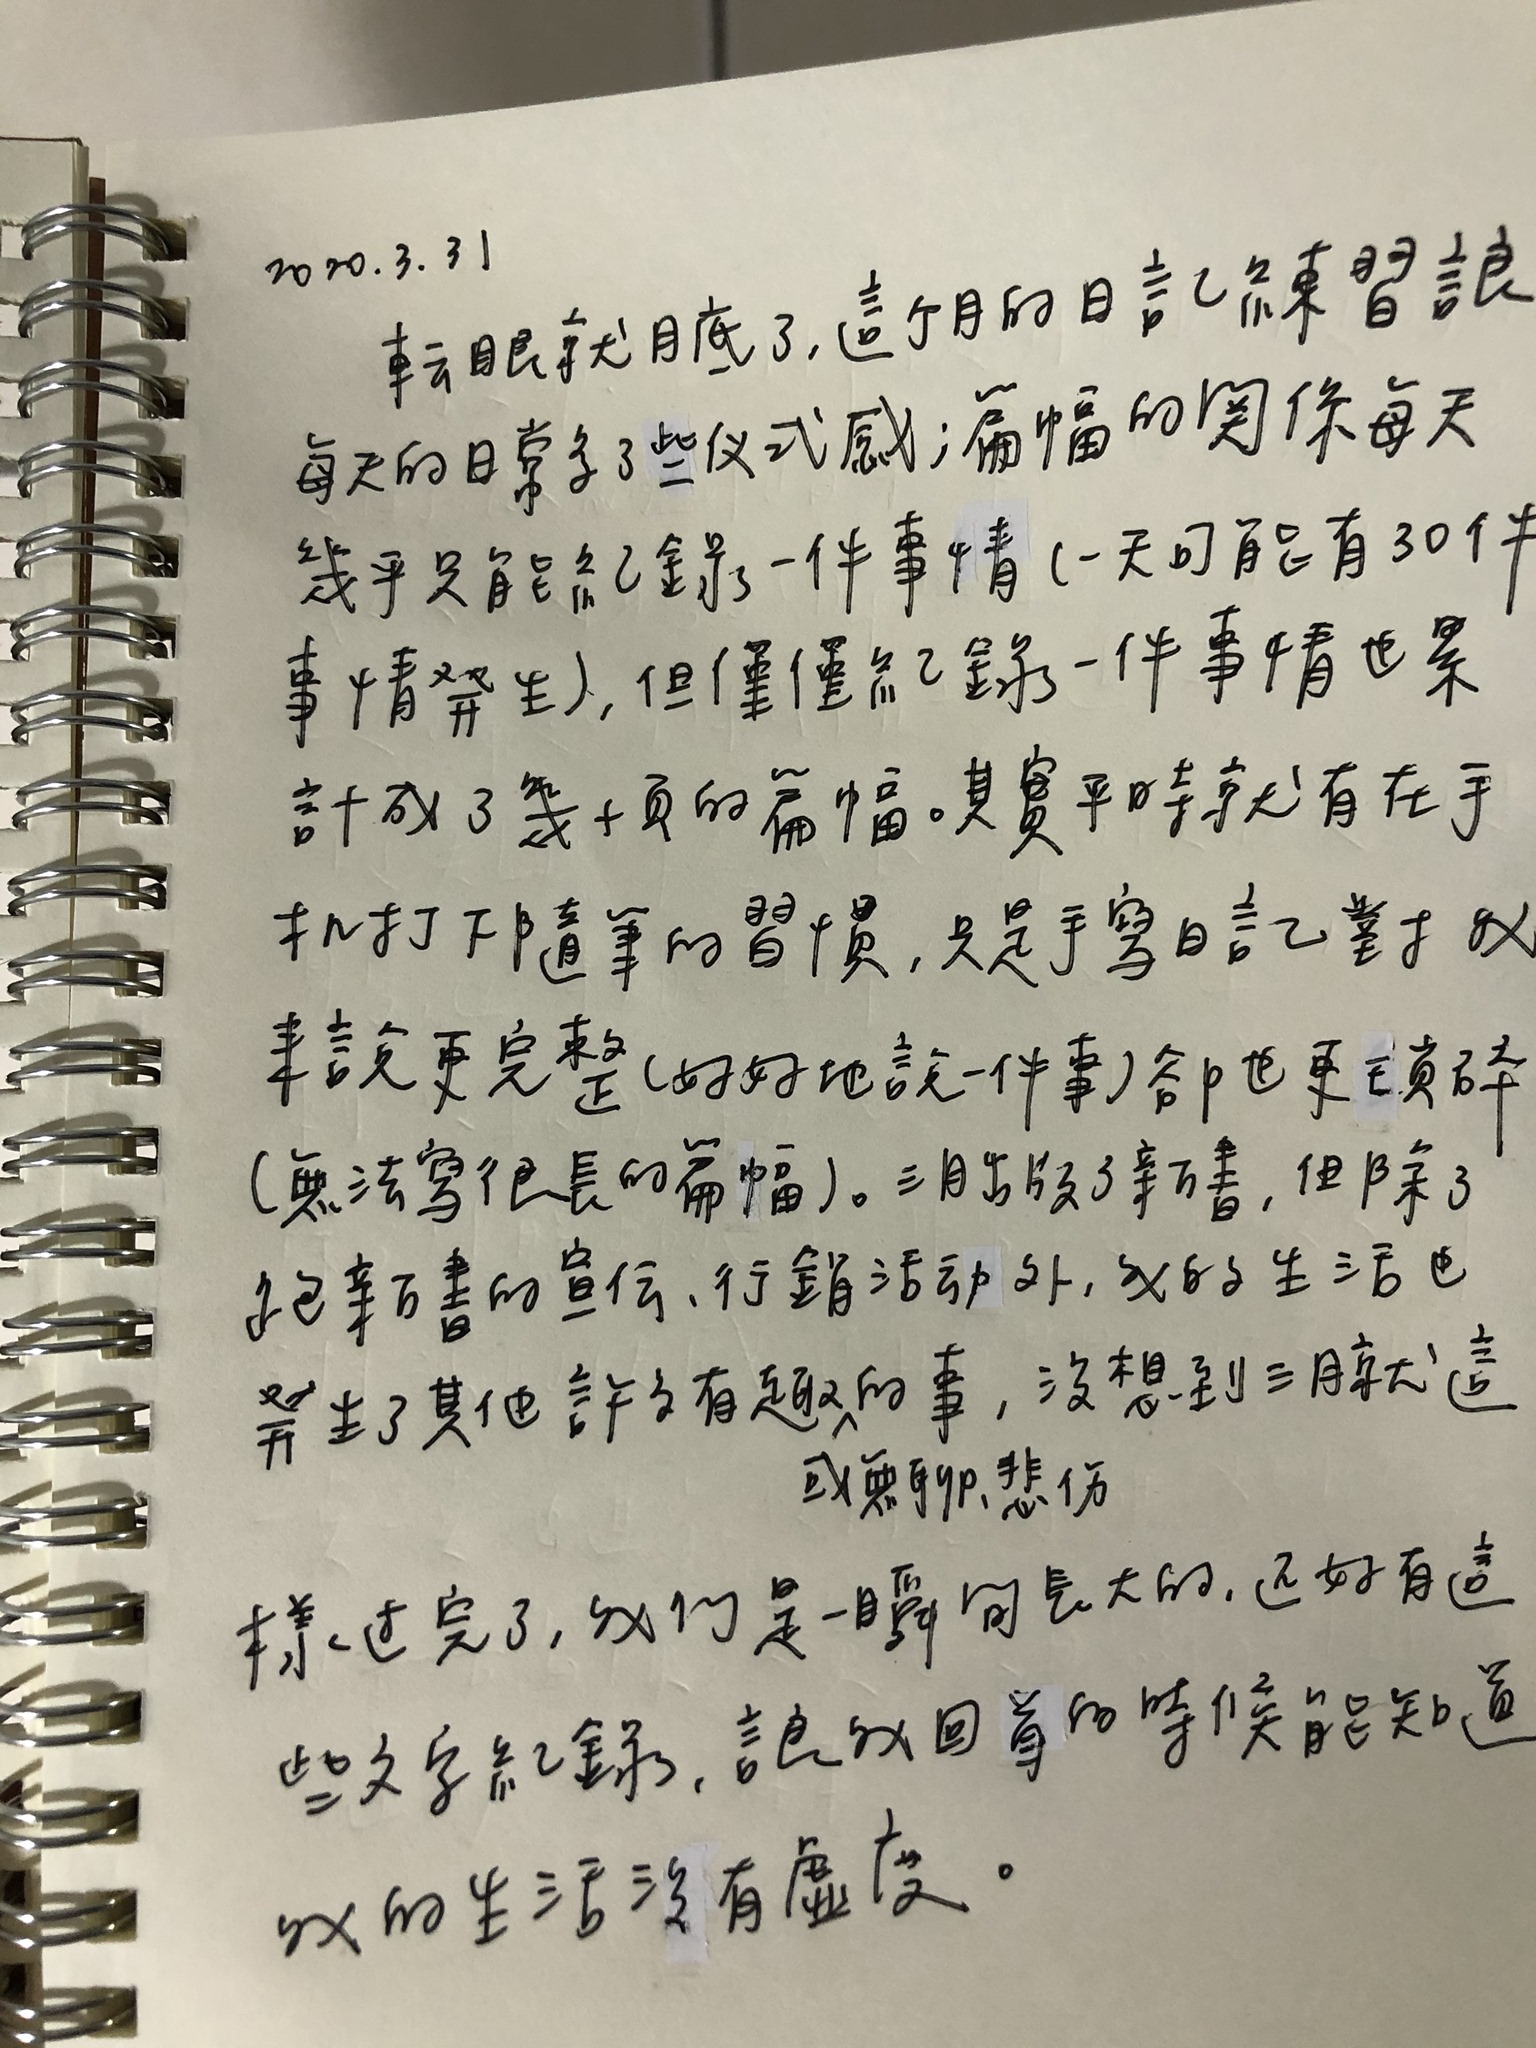 2020.3.31
転眼就月底了,這个月的日記練習讓
每天的日常多了些仪式感;篇幅的関係每天
幾乎只能紀錄一件事情(一天可能有30件
事情発生),但僅僅紀錄一件事情也累
計成了幾十頁的篇幅。其實平時就有在手
机打下隨筆的習慣,只是手寫日記對我
来說更完整(好好地說一件事)卻也更瑣碎
(無法寫很長的篇幅)。三月出版了新書,但除了
跑新書的宣伝、行銷活动外,我的生活也
発生了其他許多有趣的事,沒想到三月就這
或無聊、悲伤
樣过完了,我們是一瞬间長大的,还好有這
些文字紀錄,讓我回首的時候能知道
我的生活沒有虛度。